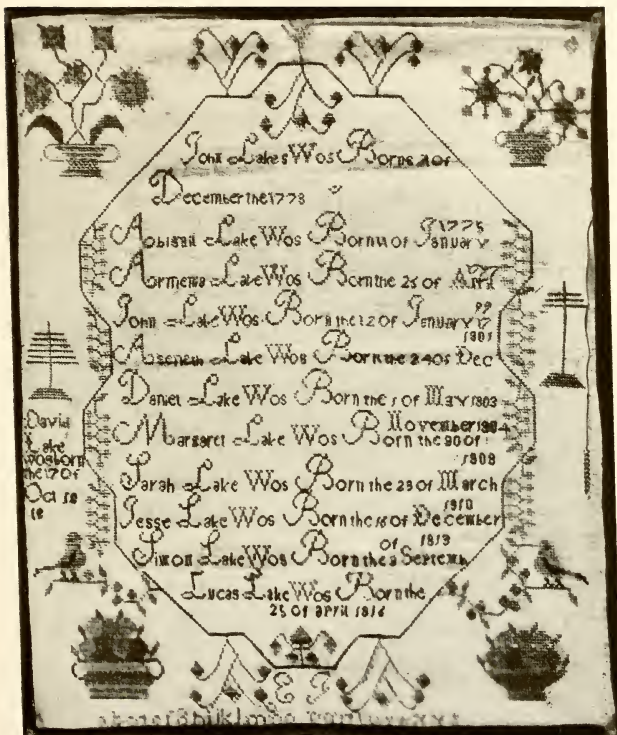 John Lakes Wos Born
December the 1773
Abigail Lake Wos Born of January 1775
Lake Wos Born the 25 of
John Lake Wos Born the 12 of January 17 99
Aseneth Lake Wos Born the 24 of Dec 1801
Daniel Lake Wos Born the 1 of May 1803
Margaret Lake Wos Born the 30 of November 1804
Sarah Lake Wos Born the 23 of March 1808
Jesse Lake Wos Born the 16 of December 1810
Simon Lake Wos Born the of Septemb 1813
Lucas Lake Wos Born the
25 of april 1816
David
Lake
Wosborn
the 17 of
Oct 18
18
E